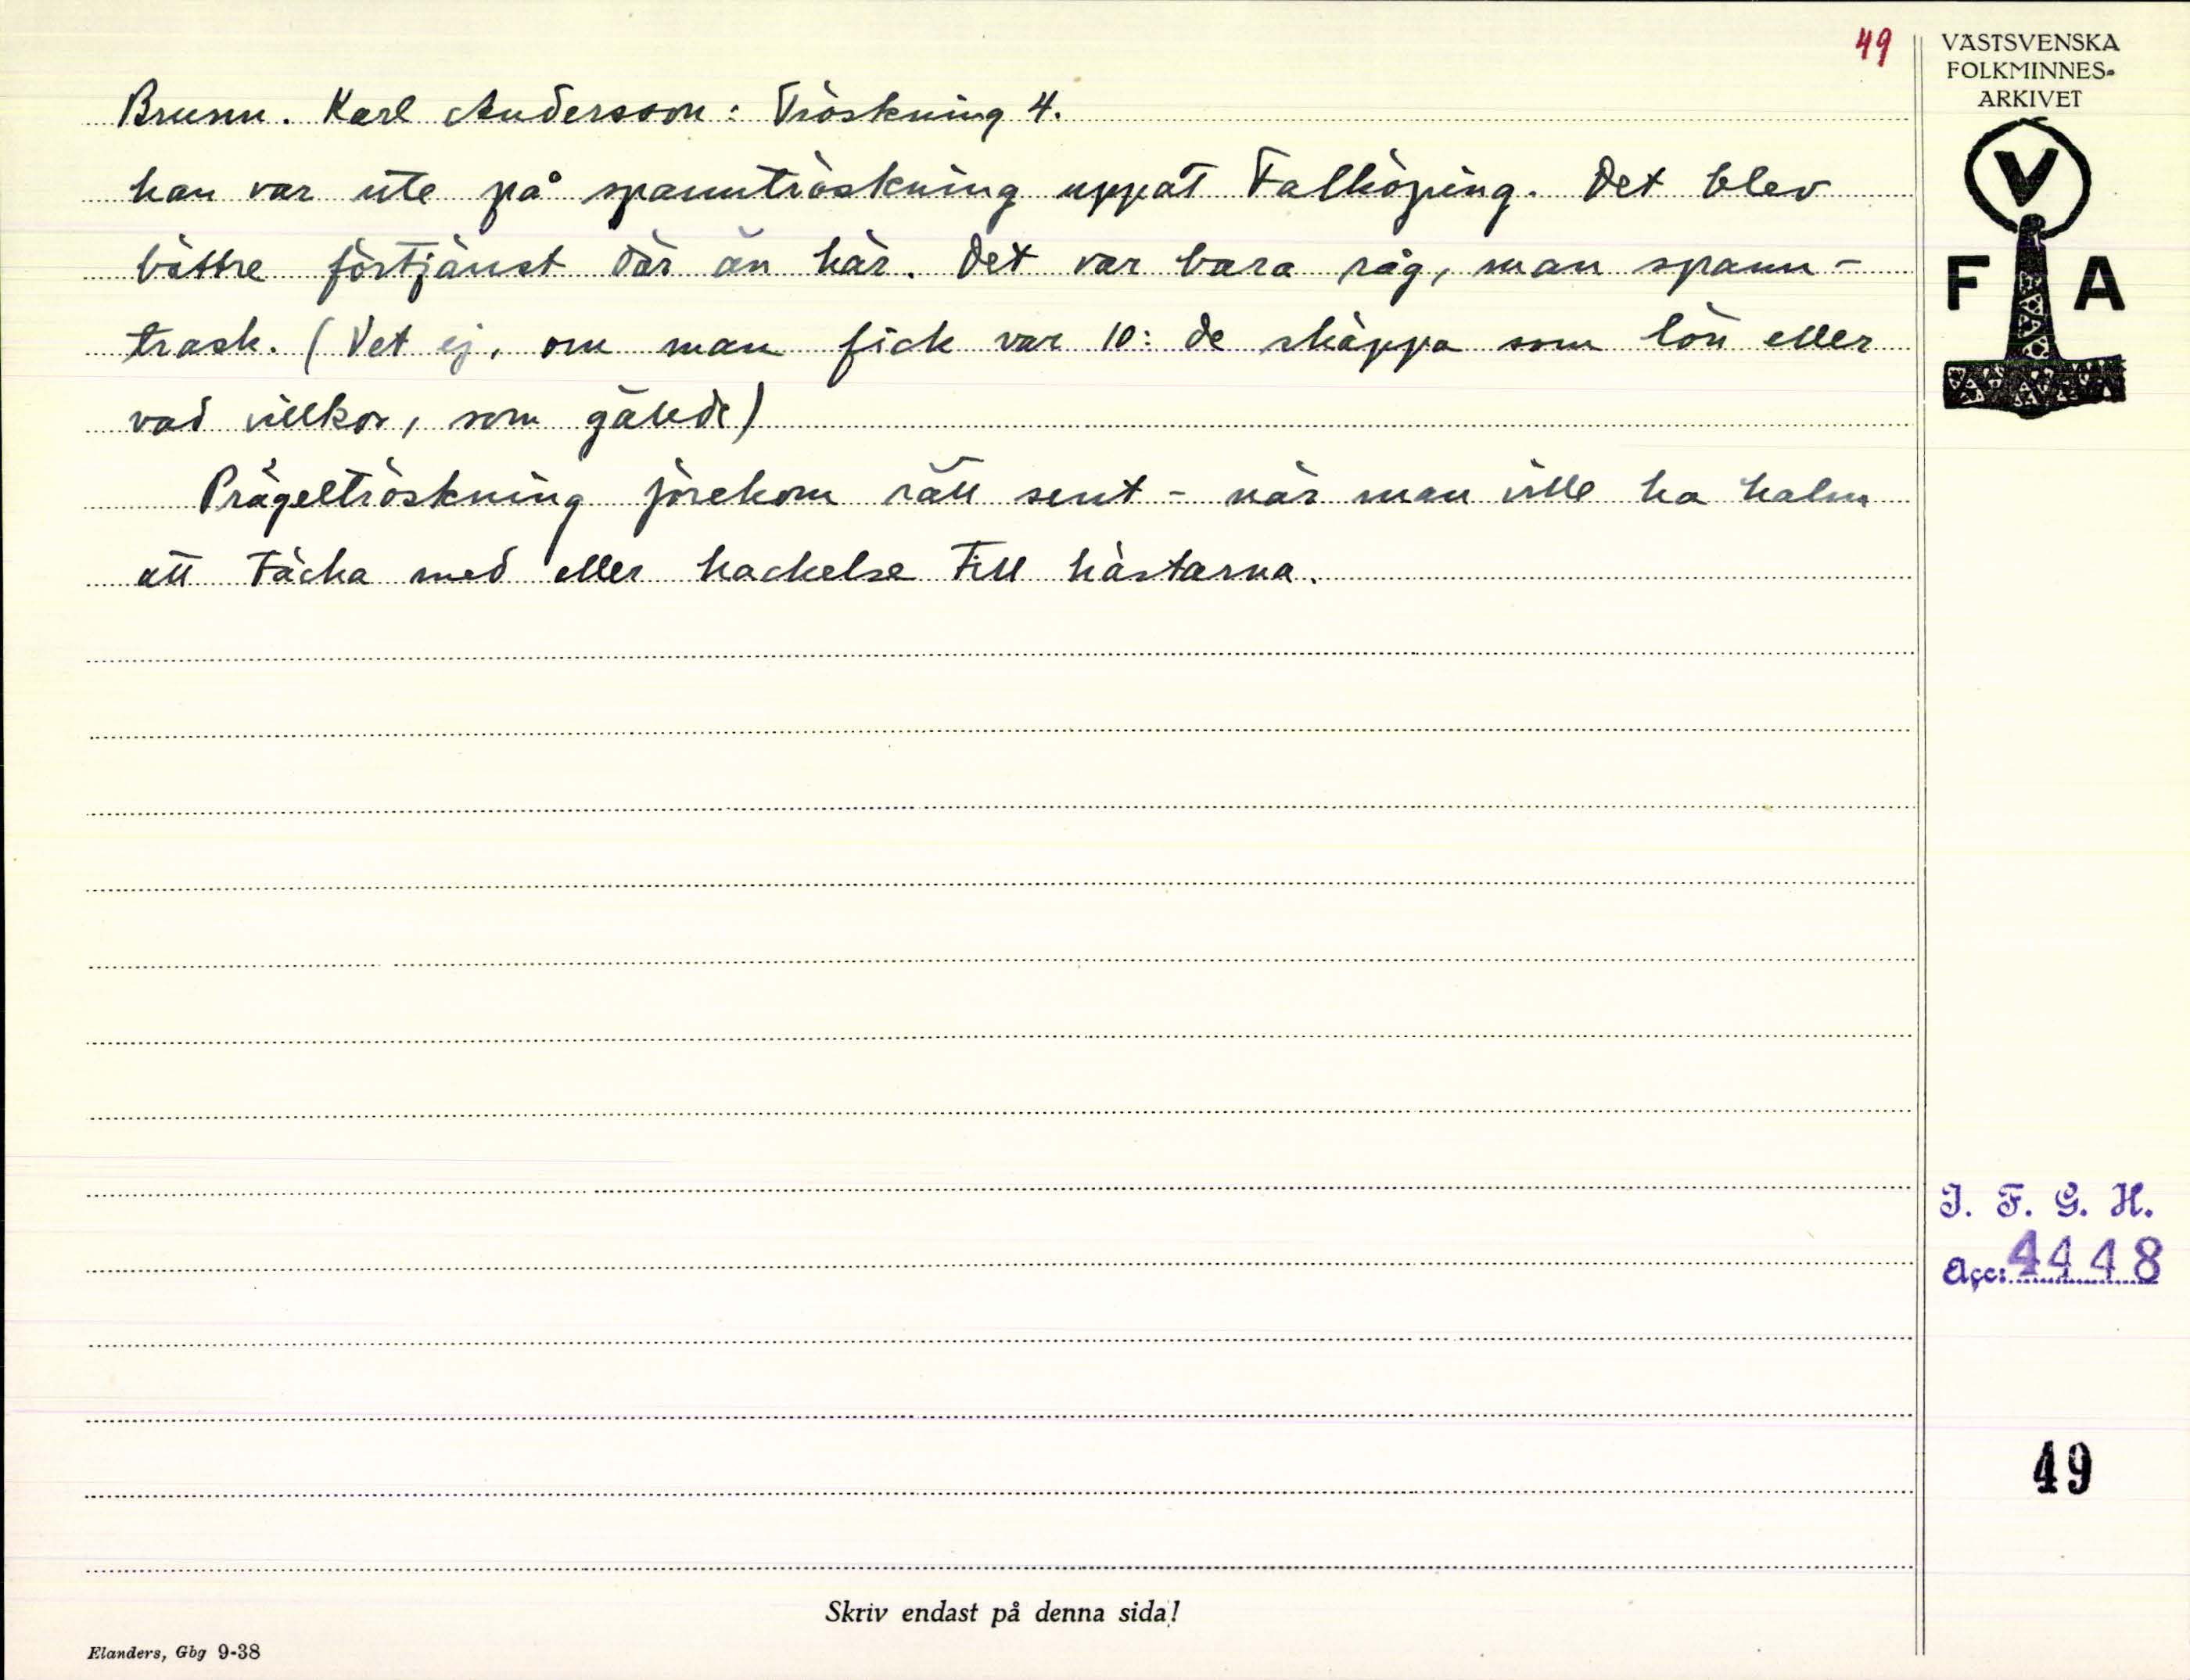 49
VÄSTSVENSKA
FOLKMINNES-
ARKIVET
V
F A
Brunn. Karl Andersson: Tröskning 4.
han var ute på spanntröskning uppåt Falköping. Det blev
bättre förtjänst där än här. Det var bara råg, man spann-
trask. (Vet ej, om man fick var 10: de skäppa som lön eller
vad villkor, som gällde)
Prägeltröskning förekom rätt sent - när man ville ha halm
att täcka med eller hackelse till hästarna.
I. F. G. H.
Acc: 4448
49
Skriv endast på denna sida!
Elanders, Gbg 9-38